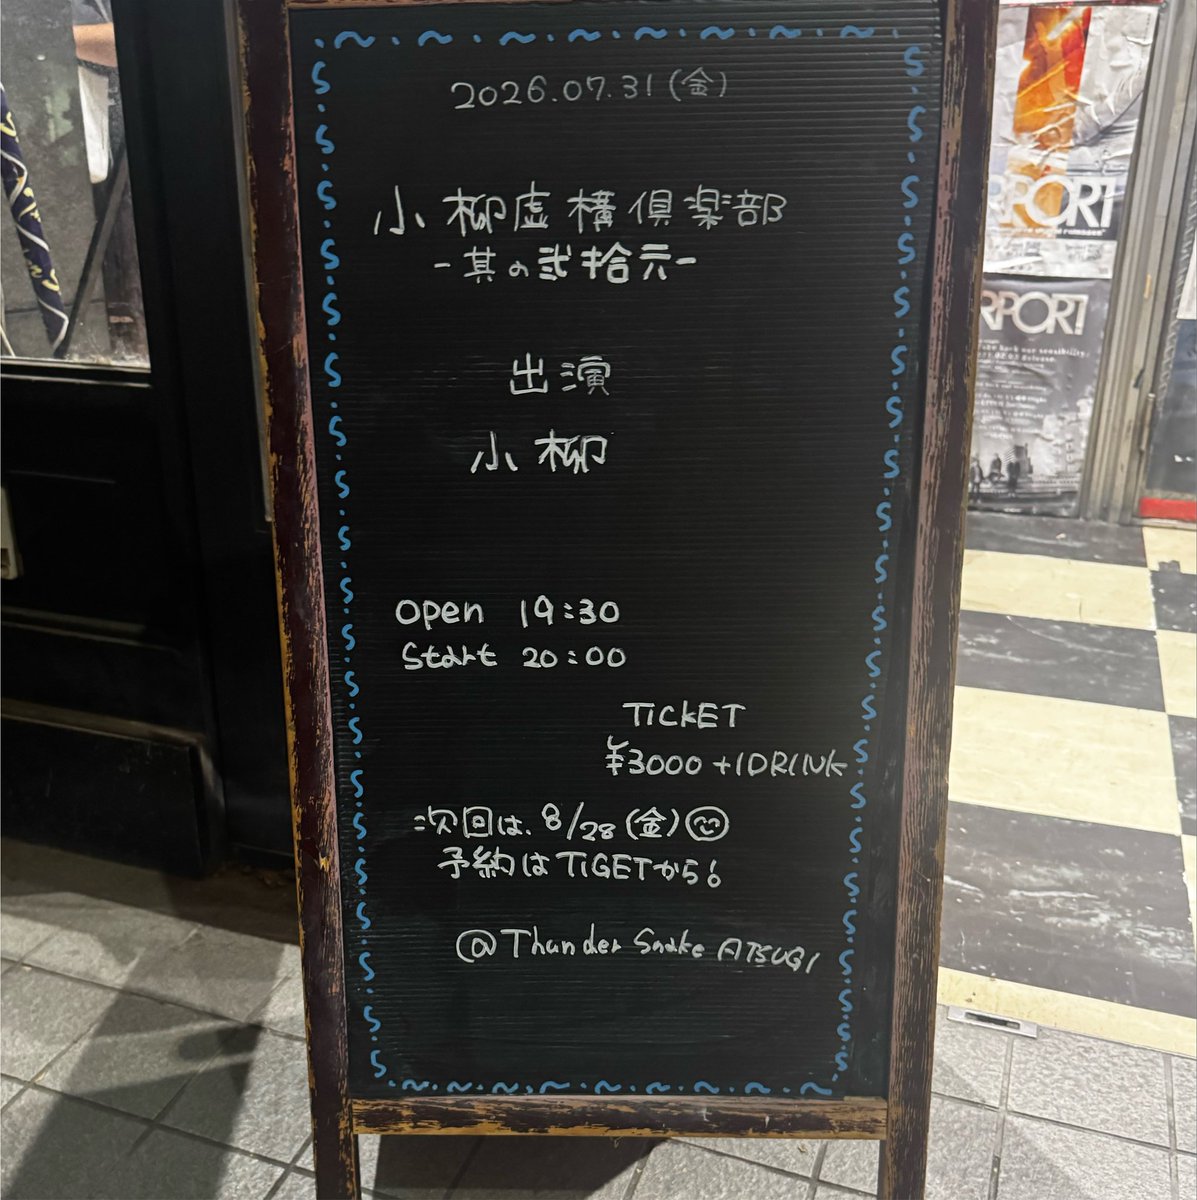 2026.07.31(金)
小柳虚構倶楽部
-其の弐拾六-
出演
小柳
open 19:30
start 20:00
TICKET
¥3000+1DRINK
次回は、8/28(金)
予約はTIGETから!
@Thunder Snake ATSUGI
RPORT
RPORT